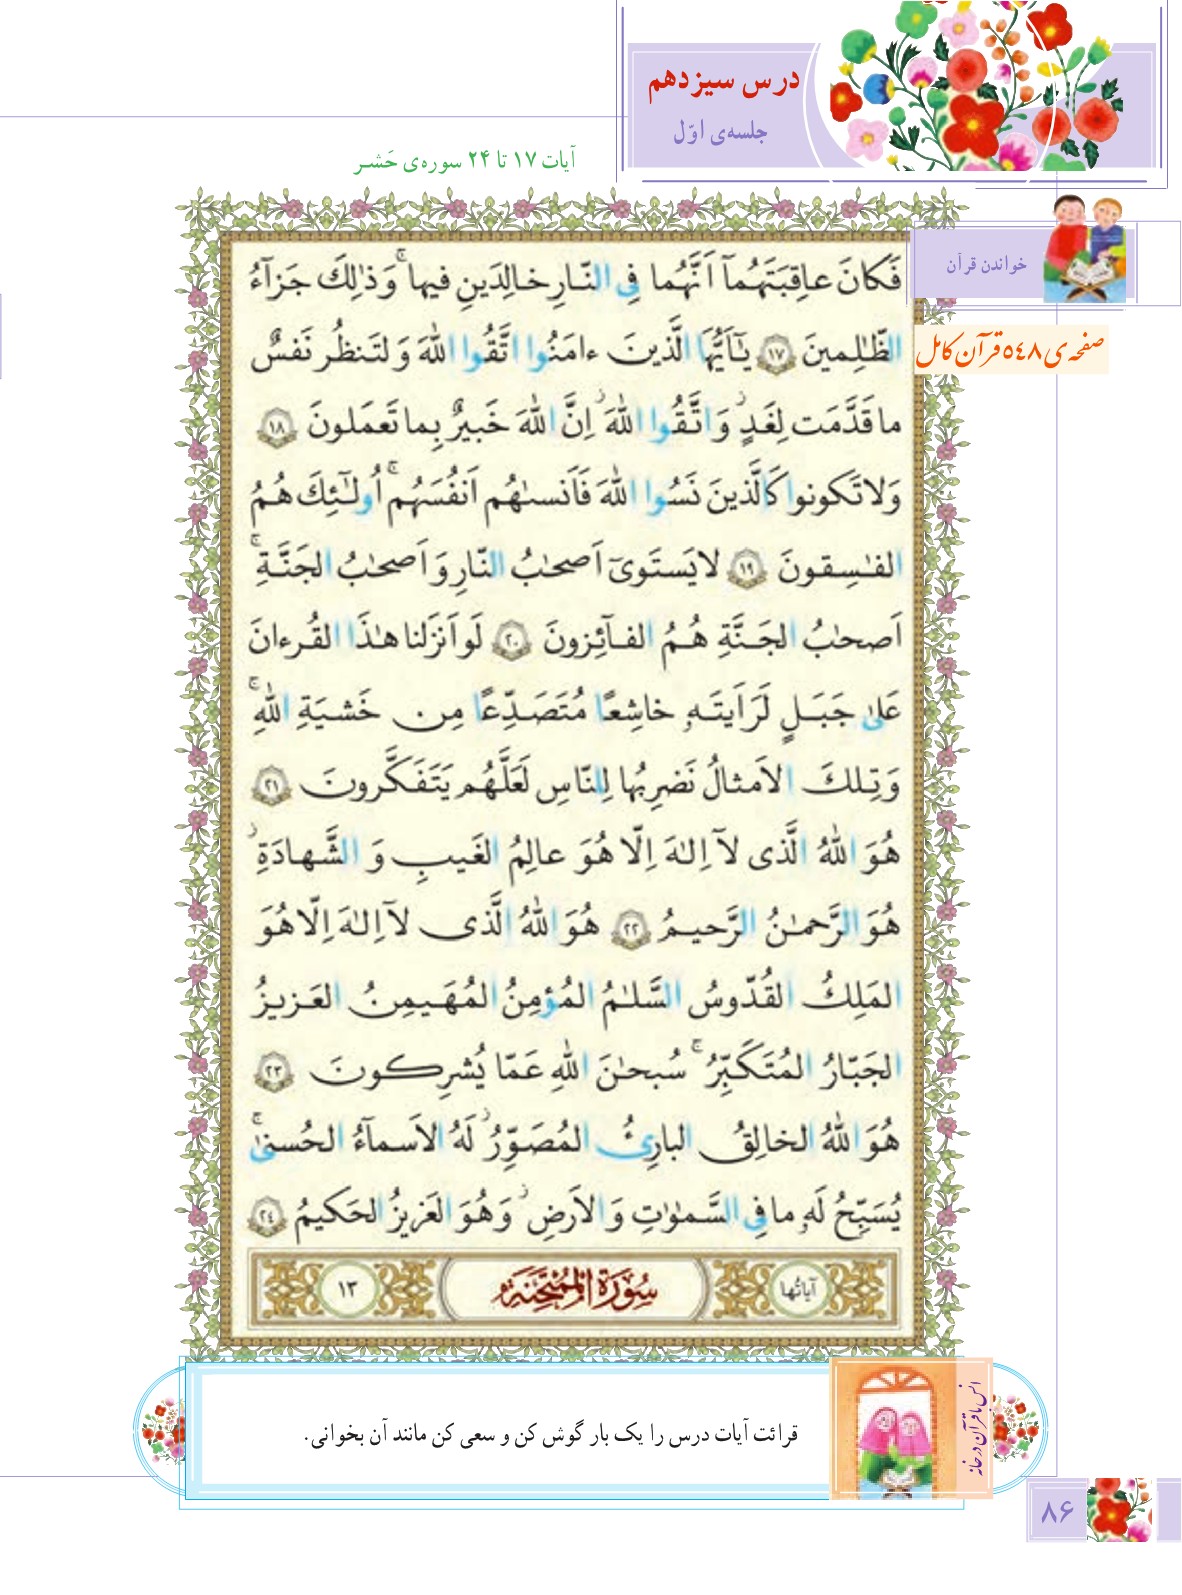 درس سیزدهم
جلسه‌ی اوّل
آیات ۱۷ تا ۲۴ سوره‌ی حَشـر
خواندن قرآن
صفحه‌ی ۵۴۸ قرآن کامل
فَكانَ عاقِبَتَهُمآ اَنَّهُما فِى النّارِ خالِدَينِ فيها ۚ وَ ذٰلِكَ جَزآءُ
الظّٰلِمينَ ﴿۱۷﴾ يٰٓاَيُّهَا الَّذينَ ءامَنُوا اتَّقُوا اللّٰهَ وَ لتَنظُر نَفسٌ
ما قَدَّمَت لِغَدٍ ۖ وَ اتَّقُوا اللّٰهَ ۚ اِنَّ اللّٰهَ خَبيرٌ بِما تَعمَلونَ ﴿۱۸﴾
وَلا تَكونوا كَالَّذينَ نَسُوا اللّٰهَ فَاَنسىٰهُم اَنفُسَهُم ۚ اُولٰٓئِكَ هُمُ
الفٰسِقونَ ﴿۱۹﴾ لا يَستَوىٓ اَصحٰبُ النّارِ وَ اَصحٰبُ الجَنَّةِ ۚ
اَصحٰبُ الجَنَّةِ هُمُ الفآئِزونَ ﴿۲۰﴾ لَو اَنزَلنا هٰذَا القُرءانَ
عَلىٰ جَبَلٍ لَرَاَيتَهٗ خاشِعًا مُتَصَدِّعًا مِن خَشيَةِ اللّٰهِ ۚ
وَ تِلكَ الاَمثالُ نَضرِبُها لِلنّاسِ لَعَلَّهُم يَتَفَكَّرونَ ﴿۲۱﴾
هُوَ اللّٰهُ الَّذى لآ اِلٰهَ اِلّا هُوَ عالِمُ الغَيبِ وَ الشَّهادَةِ ۖ
هُوَ الرَّحمٰنُ الرَّحيمُ ﴿۲۲﴾ هُوَ اللّٰهُ الَّذى لآ اِلٰهَ اِلّا هُوَ
المَلِكُ القُدّوسُ السَّلٰمُ المُؤمِنُ المُهَيمِنُ العَزيزُ
الجَبّارُ المُتَكَبِّرُ ۚ سُبحٰنَ اللّٰهِ عَمّا يُشرِكونَ ﴿۲۳﴾
هُوَ اللّٰهُ الخالِقُ البارِئُ المُصَوِّرُ ۖ لَهُ الاَسمآءُ الحُسنىٰ ۚ
يُسَبِّحُ لَهٗ ما فِى السَّمٰوٰتِ وَ الاَرضِ ۖ وَ هُوَ العَزيزُ الحَكيمُ ﴿۲۴﴾
آياتُها
سُورَةُ المُمتَحِنَة
۱۳
انس با قرآن در خانه
قرائت آیات درس را یک بار گوش کن و سعی کن مانند آن بخوانی.
۸۶